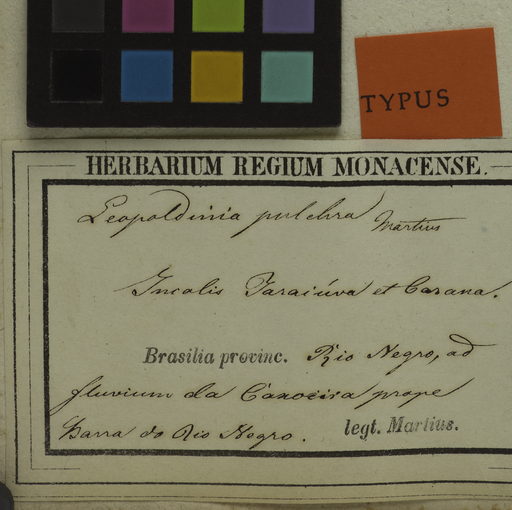 TYPUS
HERBARIUM REGIUM MONACENSE.
Leopoldinia pulchra Martius
Incolis Jaraiúva et Carana.
Brasilia provinc. Rio Negro, ad
fluvium da Caxoeira prope
Barra do Rio Negro. legt. Martius.